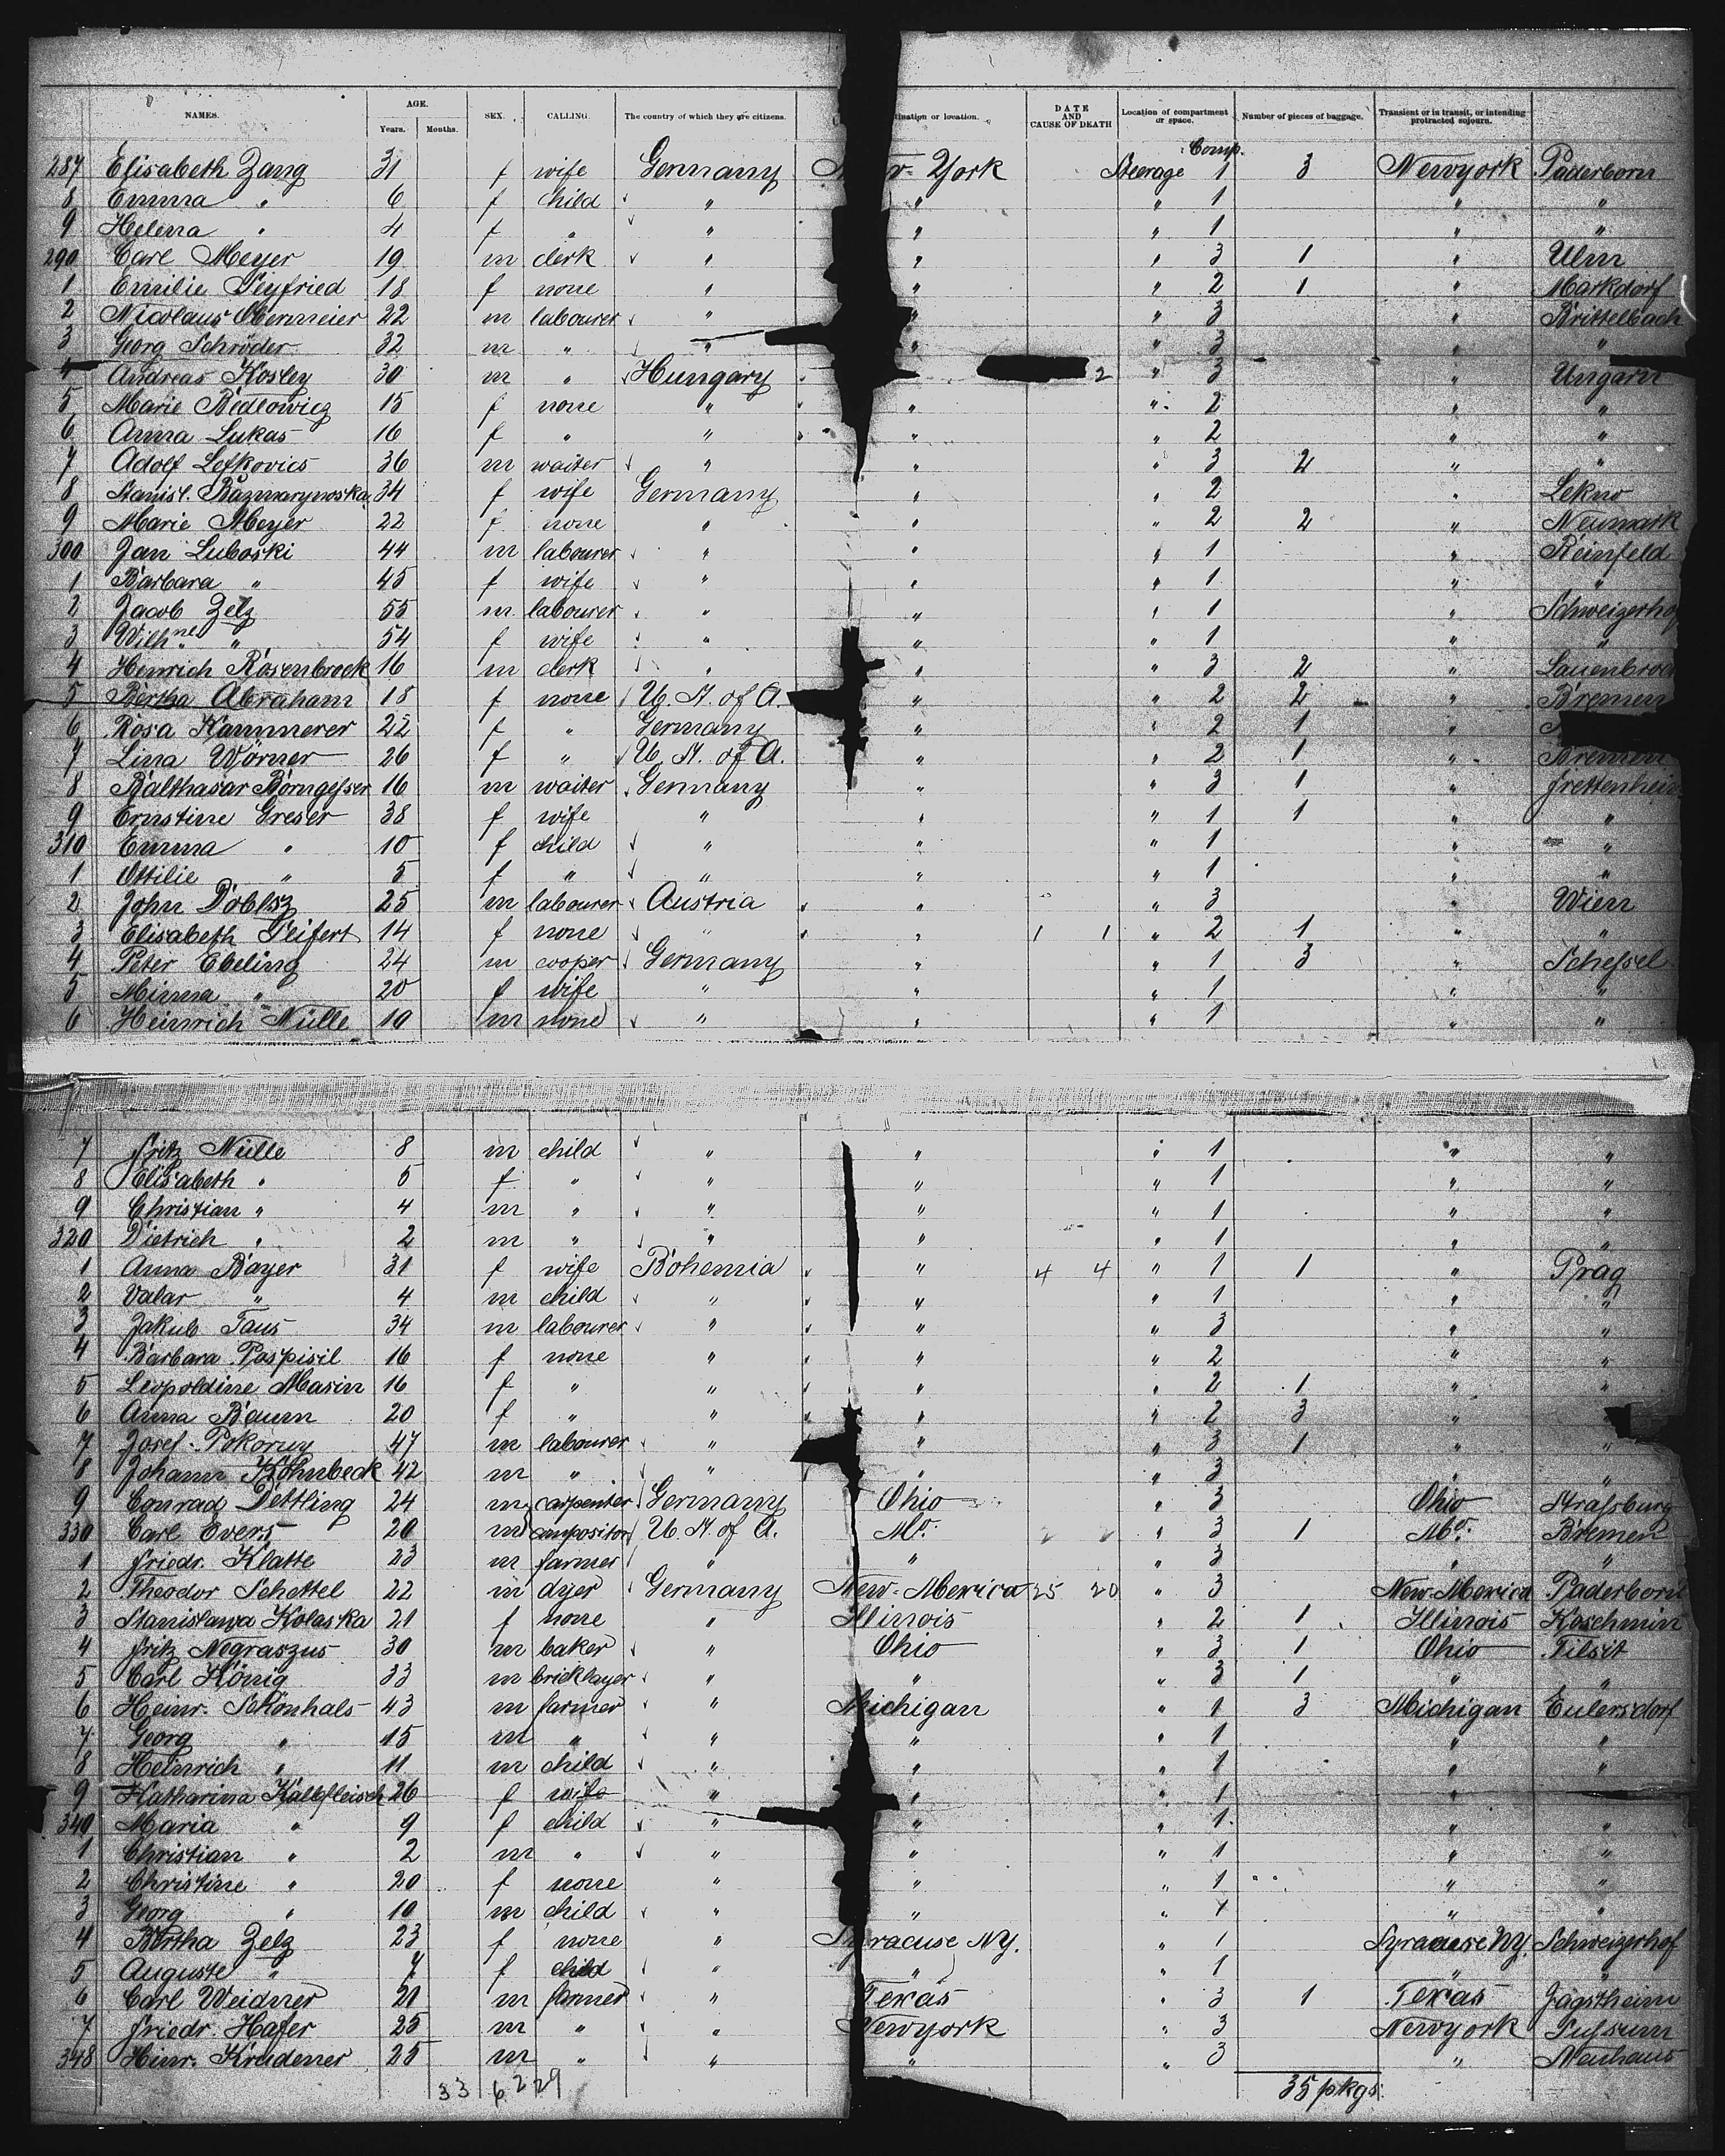 NAMES. AGE. Years. Months. SEX. CALLING. The country of which they are citizens. tination or location. DATE AND CAUSE OF DEATH Location of compartment or space. Number of pieces of baggage. Transient or in transit, or intending protracted sojourn.
Comp.
287 Elisabeth Zang 31 f wife Germany York Steerage 1 3 Newyork Paderborn
8 Emma " 6 f child " " " 1 " "
9 Helena " 4 f " " " " 1 " "
290 Carl Meyer 19 m clerk " " " 3 1 " Ulm
1 Emilie Seyfried 18 f none " " " 2 1 " Markdorf
2 Nicolaus Obermeier 22 m labourer " " " 3 " Brittelbach
3 Georg Schröder 32 m " " " " 3 " "
4 Andreas Kosley 30 m " Hungary " 2 " 3 " Ungarn
5 Marie Bedlowicz 15 f none " " " 2 " "
6 Anna Lukas 16 f " " " " 2 " "
7 Adolf Lefkovics 36 m waiter " " " 3 2 " "
8 Stanisl. 34 f wife Germany " " 2 " Lekno
9 Marie Meyer 22 f none " " " 2 2 " Neumark
300 Jan Luboski 44 m labourer " " " 1 " Reinfeld
1 Barbara " 45 f wife " " " 1 " "
2 Jacob Zelz 55 m labourer " " " 1 " Schweizerhof
3 Wilhne " 54 f wife " " " 1 " "
4 Heinrich Rosenbrock 16 m clerk " " " 3 2 " Lauenbrock
5 Bertha Abraham 18 f none U. St. of A. " " 2 2 " Bremen
6 Rosa Kammerer 22 f " Germany " " 2 1 "
7 Lina Wörner 26 f " U. St. of A. " " 2 1 " Bremen
8 Balthasar Borngesser 16 m waiter Germany " " 3 1 " Frettenheim
9 Ernstine Greser 38 f wife " " " 1 1 " "
310 Emma " 10 f child " " " 1 " "
1 Ottilie " 5 f " " " " 1 " "
2 John Doblsz 25 m labourer Austria " " 3 " Wien
3 Elisabeth Seifert 14 f none " " 1 1 " 2 1 " "
4 Peter Ebeling 24 m cooper Germany " " 1 3 " Schessel
5 Minna " 20 f wife " " " 1 " "
6 Heinrich Nülle 19 m none " " " 1 " "
7 Fritz Nülle 8 m child " " " 1 " "
8 Elisabeth " 5 f " " " " 1 " "
9 Christian " 4 m " " " " 1 " "
320 Dietrich " 2 m " " " " 1 " "
1 Anna Bayer 31 f wife Bohemia " 4 4 " 1 1 " Prag
2 Valar " 4 m child " " " 1 " "
3 Jakub Taus 34 m labourer " " " 3 " "
4 Barbara Pospisil 16 f none " " " 2 " "
5 Leopoldine Masin 16 f " " " " 2 1 " "
6 Anna Baum 20 f " " " " 2 3 "
7 Josef Pokorny 47 m labourer " " " 3 1 " "
8 Johann Köhnbeck 42 m " " " " 3 " "
9 Conrad Dettling 24 m carpenter Germany Ohio " 3 Ohio Strassburg
330 Carl Evers 20 m compositor U St. of A. Mo. " 3 1 Mo. Bremen
1 Friedr. Klatte 23 m farmer " " " 3 " "
2 Theodor Schettel 22 m dyer Germany New-Mexica 25 20 " 3 New-Mexica Paderborn
3 Stanislawa Kolaska 21 f none " Illinois " 2 1 Illinois Koschmin
4 Fritz Negraszus 30 m baker " Ohio " 3 1 Ohio Tilsit
5 Carl König 33 m bricklayer " " " 3 1 " "
6 Heinr. Schönhals 43 m farmer " Michigan " 1 3 Michigan Eulersdorf
7 Georg " 15 m " " " " 1 " "
8 Heinrich " 11 m child " " " 1 " "
9 Katharina Kalbfleisch 26 f wife " " " 1 " "
340 Maria " 9 f child " " " 1 " "
1 Christian " 2 m " " " " 1 " "
2 Christine " 20 f none " " " 1 " "
3 Georg " 10 m child " " " 1 " "
4 Bertha Zelz 23 f none " Syracuse NY. " 1 Syracuse NY. Schweizerhof
5 Auguste " 7 f child " " " 1 " "
6 Carl Weidner 21 m farmer " Texas " 3 1 Texas Jagstheim
7 Friedr. Hafer 25 m " " Newyork " 3 Newyork Sussum
348 Heinr. Krudener 25 m " " " " 3 " Neuhaus
33 62 29 35 pkgs.